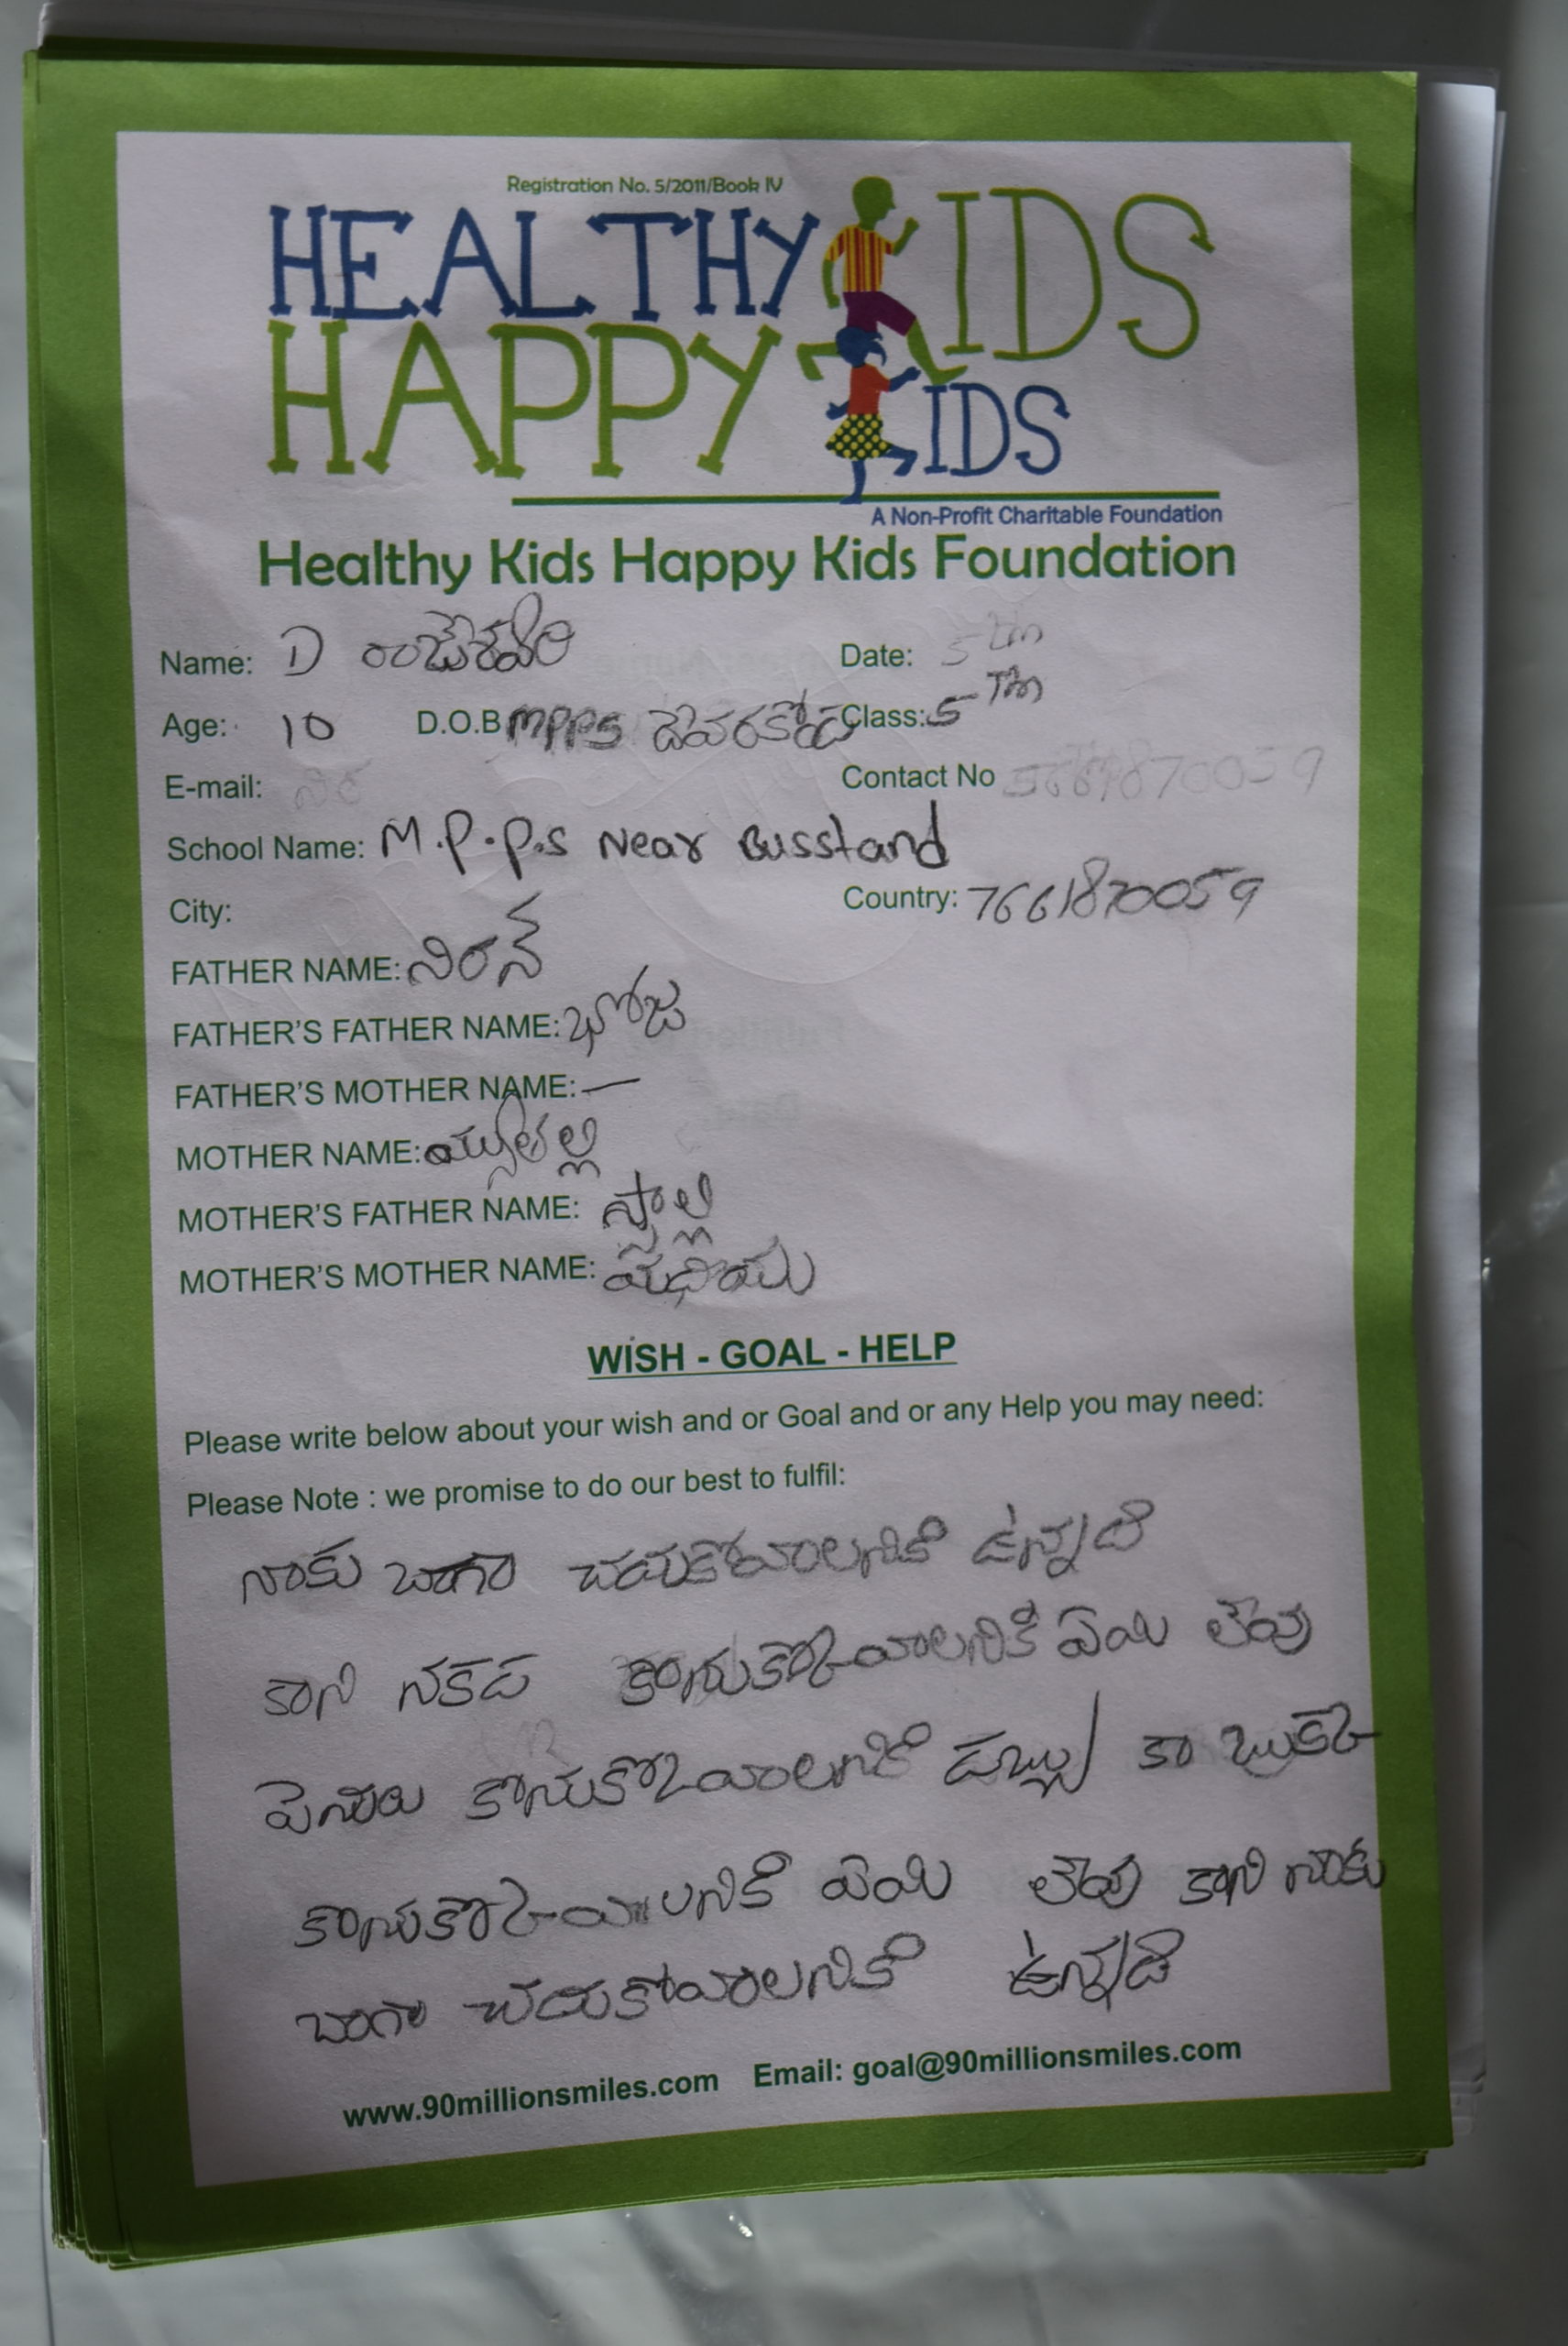 Registration No. 5/2011/Book IV
HEALTHY KIDS
HAPPY KIDS
A Non-Profit Charitable Foundation
Healthy Kids Happy Kids Foundation
Name: D Date: 5th
Age: 10 D.O.B MPPS దేవరకోండ Class: 5Th
E-mail: Contact No
School Name: M.P.P.S Near Busstand
City: Country: 7661870059
FATHER NAME: నిరన్
FATHER'S FATHER NAME: భోజ
FATHER'S MOTHER NAME: —
MOTHER NAME:
MOTHER'S FATHER NAME:
MOTHER'S MOTHER NAME:
WISH - GOAL - HELP
Please write below about your wish and or Goal and or any Help you may need:
Please Note : we promise to do our best to fulfil:
నాకు బాగా చదుకోవాలనికి ఉన్నది
కాని నకడ కొనుకోవాలనికి ఏమి లేవు
కొనుకోవాలనికి డబ్బు కా
కొనుకోవాలనికి ఏమి లేవు కాని నాకు
బాగా చదుకోవాలనికి ఉన్నది
www.90millionsmiles.com Email: goal@90millionsmiles.com